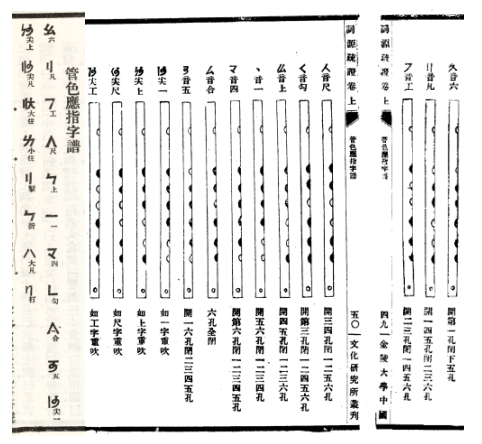 音六 開第一孔閉下五孔
音凡 開一四五孔閉二三六孔
音工 開二三孔閉一四五六孔
詞源疏證 卷上 管色應指字譜 四九 金陵大學中國
詞源疏證 卷上 管色應指字譜 五〇 文化研究所叢刊
人音尺 開三四孔閉一二五六孔
音勾 開第三孔閉一二四五六孔
音上 開四五孔閉一二三六孔
音一 開五六孔閉一二三四孔
マ音四 開第六孔閉一二三四五孔
音合 六孔全閉
音五 開一六孔閉二三四五孔
尖一 如一字重吹
尖上 如上字重吹
尖尺 如尺字重吹
尖工 如工字重吹
管色應指字譜
六 凡 工 尺 上 一 四 勾 合 五 尖一
尖上 尖凡 大住 小住 掣 折 大凡 打